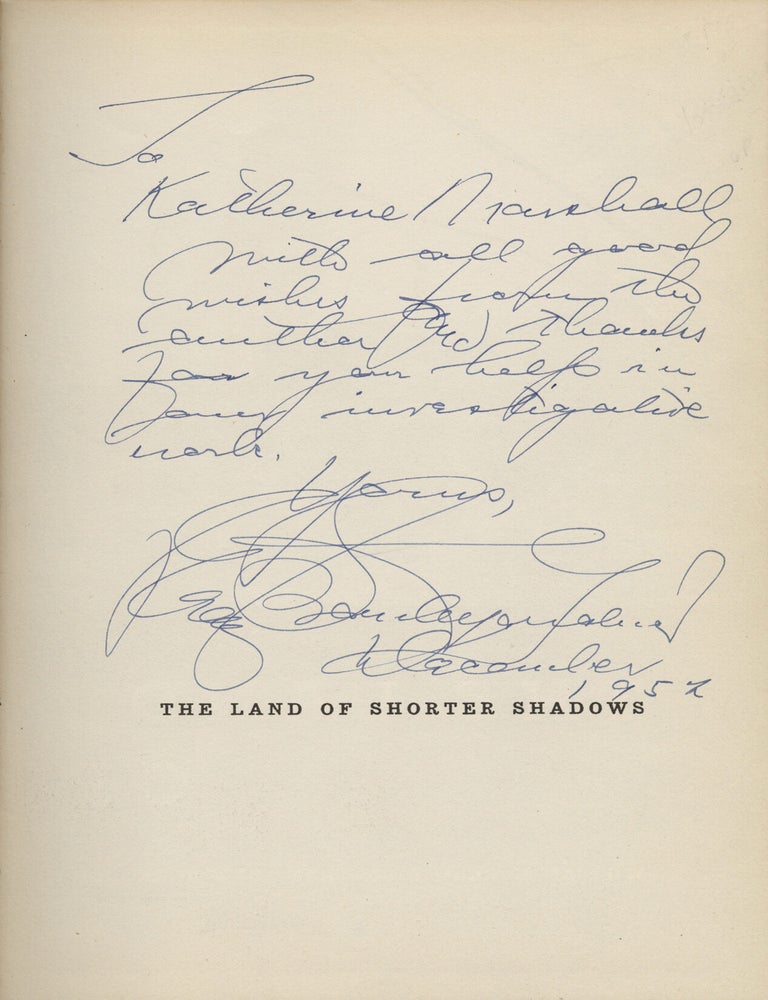 To
Katherine Marshall
with all good
wishes from the
author and thanks
for your help in
investigative
work.
Yours,
Erle Stanley Gardner
December
1952
THE LAND OF SHORTER SHADOWS